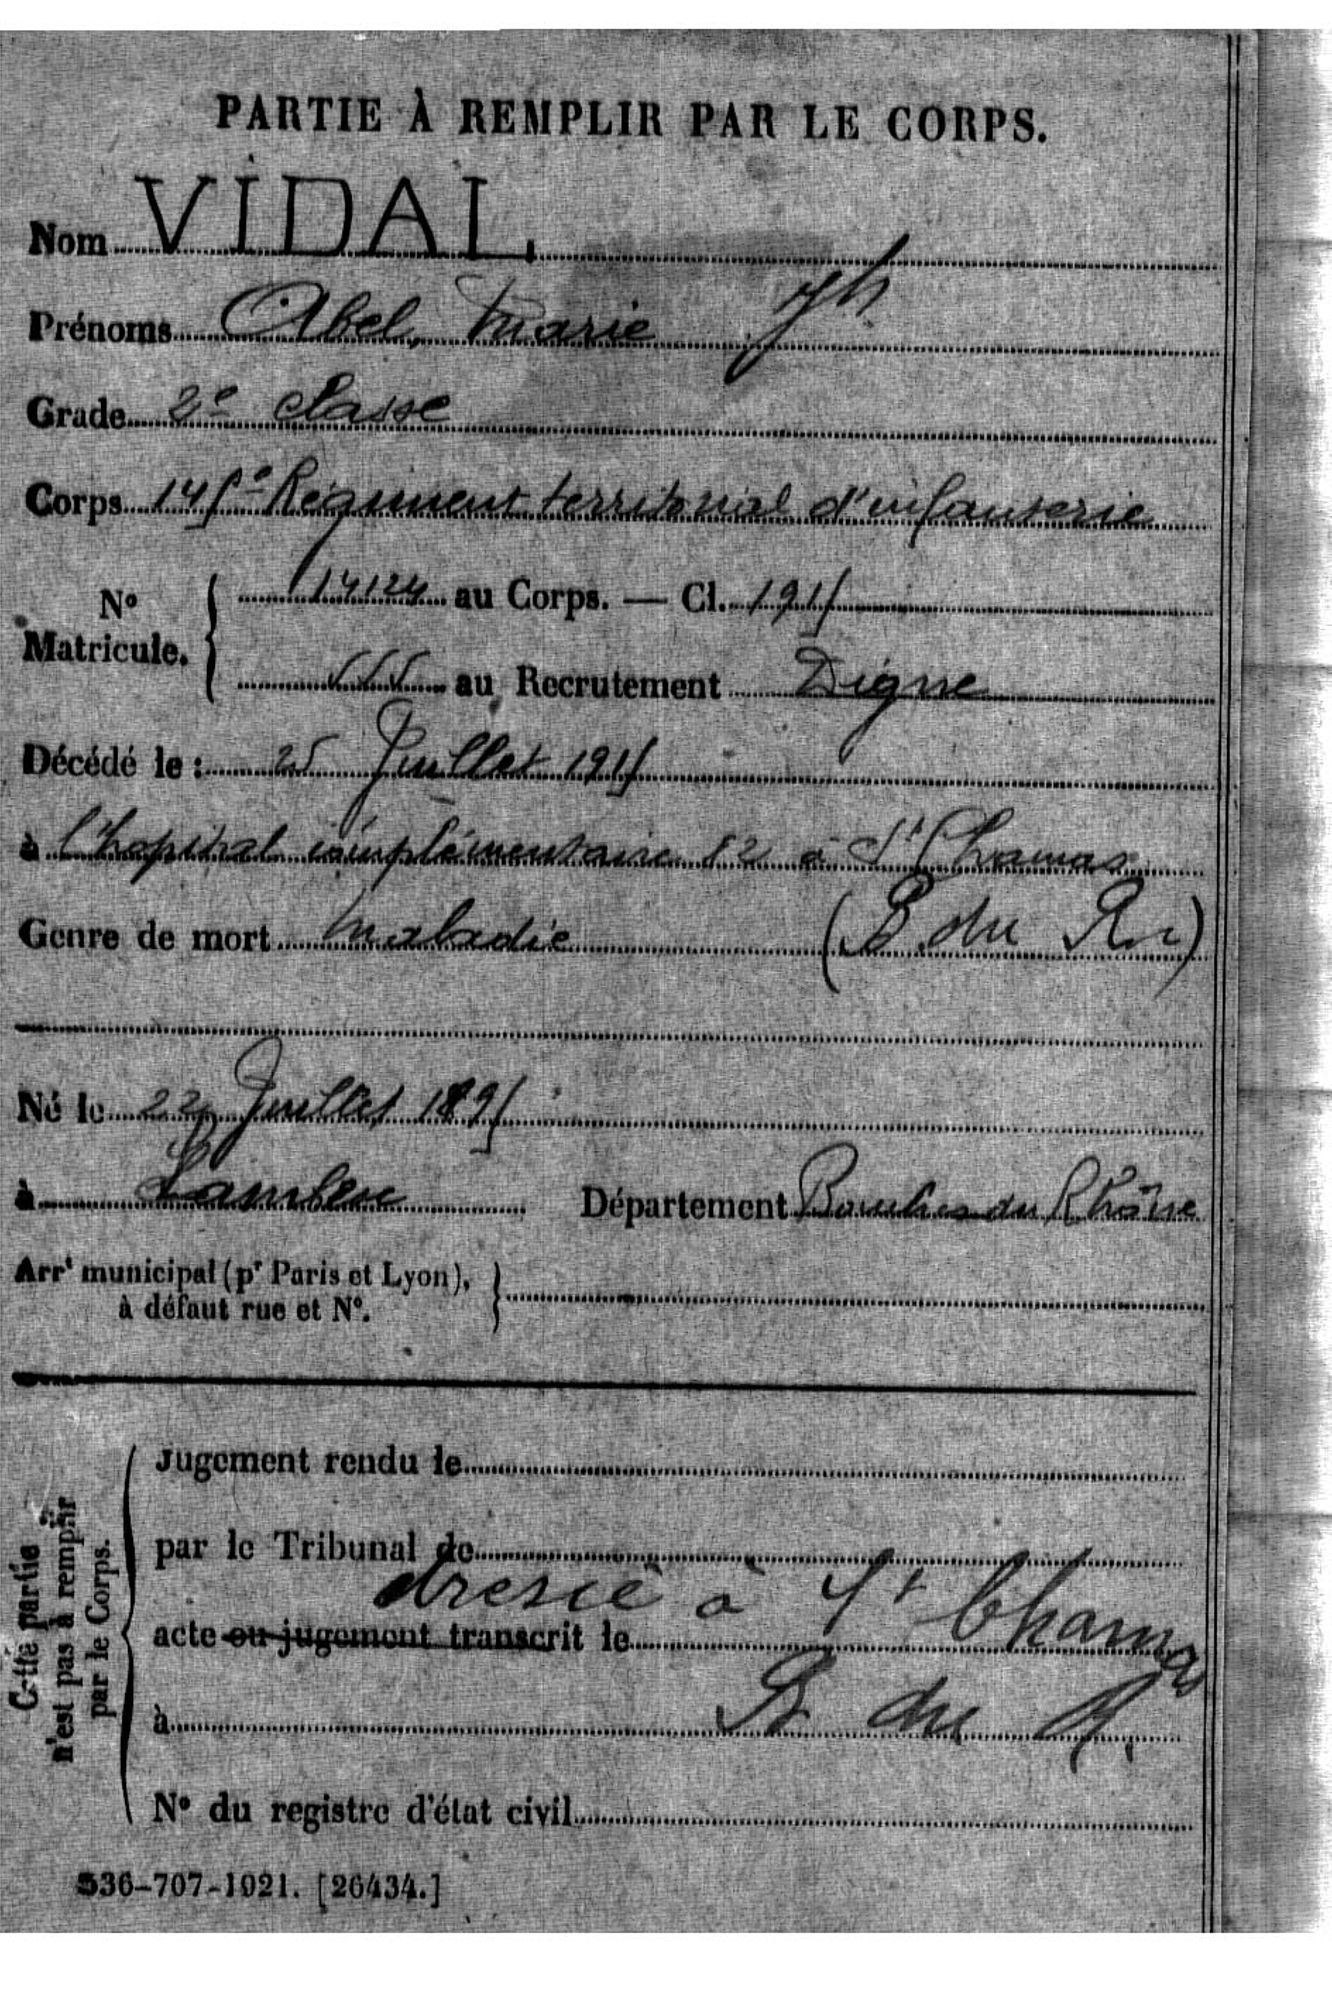 PARTIE À REMPLIR PAR LE CORPS.
Nom VIDAL
Prénoms Abel, Marie Jh
Grade 2e classe
Corps 145e Régiment territorial d'infanterie
No Matricule. 14124 au Corps. — Cl. 1915
555 au Recrutement Digne
Décédé le : 25 Juillet 1915
à l'hopital complémentaire 52 à St Chamas
Genre de mort maladie (B. du Rh)
Né le 22 Juillet 1895
à Lambesc Département Bouches du Rhône
Arrt municipal (pr Paris et Lyon),
à défaut rue et No.
Cette partie
n'est pas à remplir
par le Corps.
Jugement rendu le
par le Tribunal de
dressé à St Chamas
acte ou jugement transcrit le
à B du R.
No du registre d'état civil
536-707-1921. [26434.]